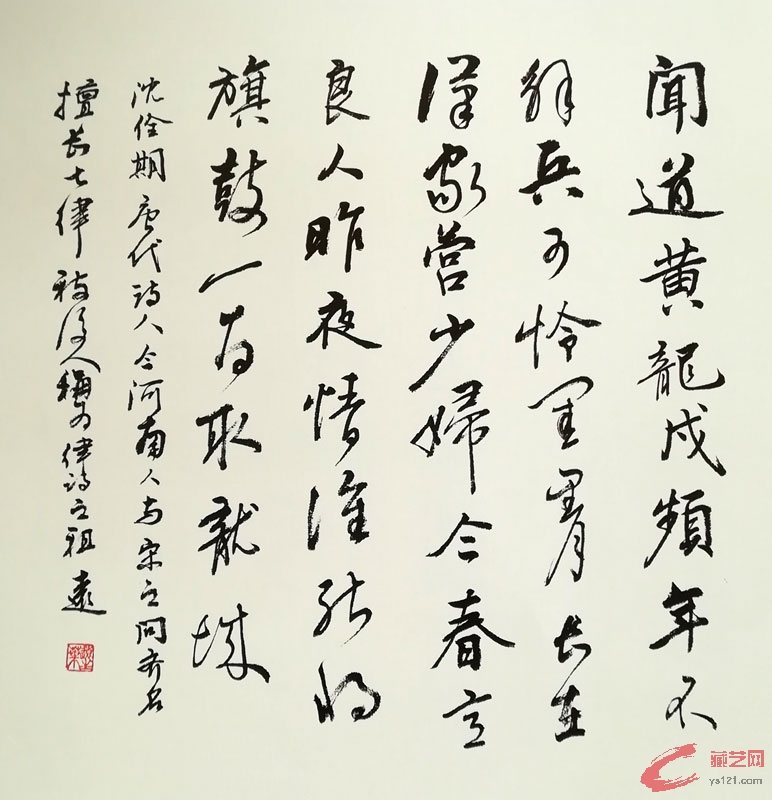 聞道黄龍戍頻年不
解兵可怜闺里月长在
漢家营少婦今春意
良人昨夜情谁能将
旗鼓一为取龍城
沈佺期唐代诗人今河南人与宋之问齐名
擅长七律被后人称为律诗之祖 遠
藏艺网
ys121.com